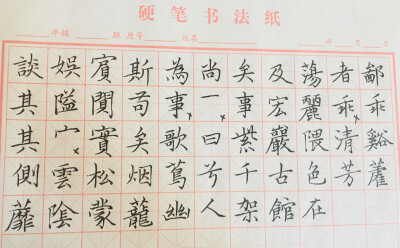 硬笔书法纸
年级 班 座号 姓名 年 月 日
談娛賓斯為尚矣及蕩者鄙
其隘闃苟事一事宏麗乖乖
其宀實矣歌曰紫巖隈清谿
側雲松烟蔦兮千古色芳藿
蘼陰蒙蘢幽人架館在